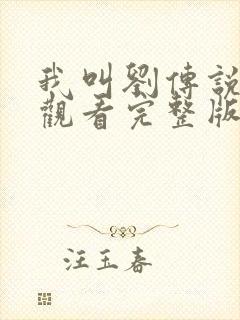 我叫劉傳說
觀看完整版
汪玉春